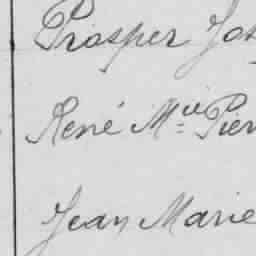 Prosper Jos
René Mie Pier
Jean Marie